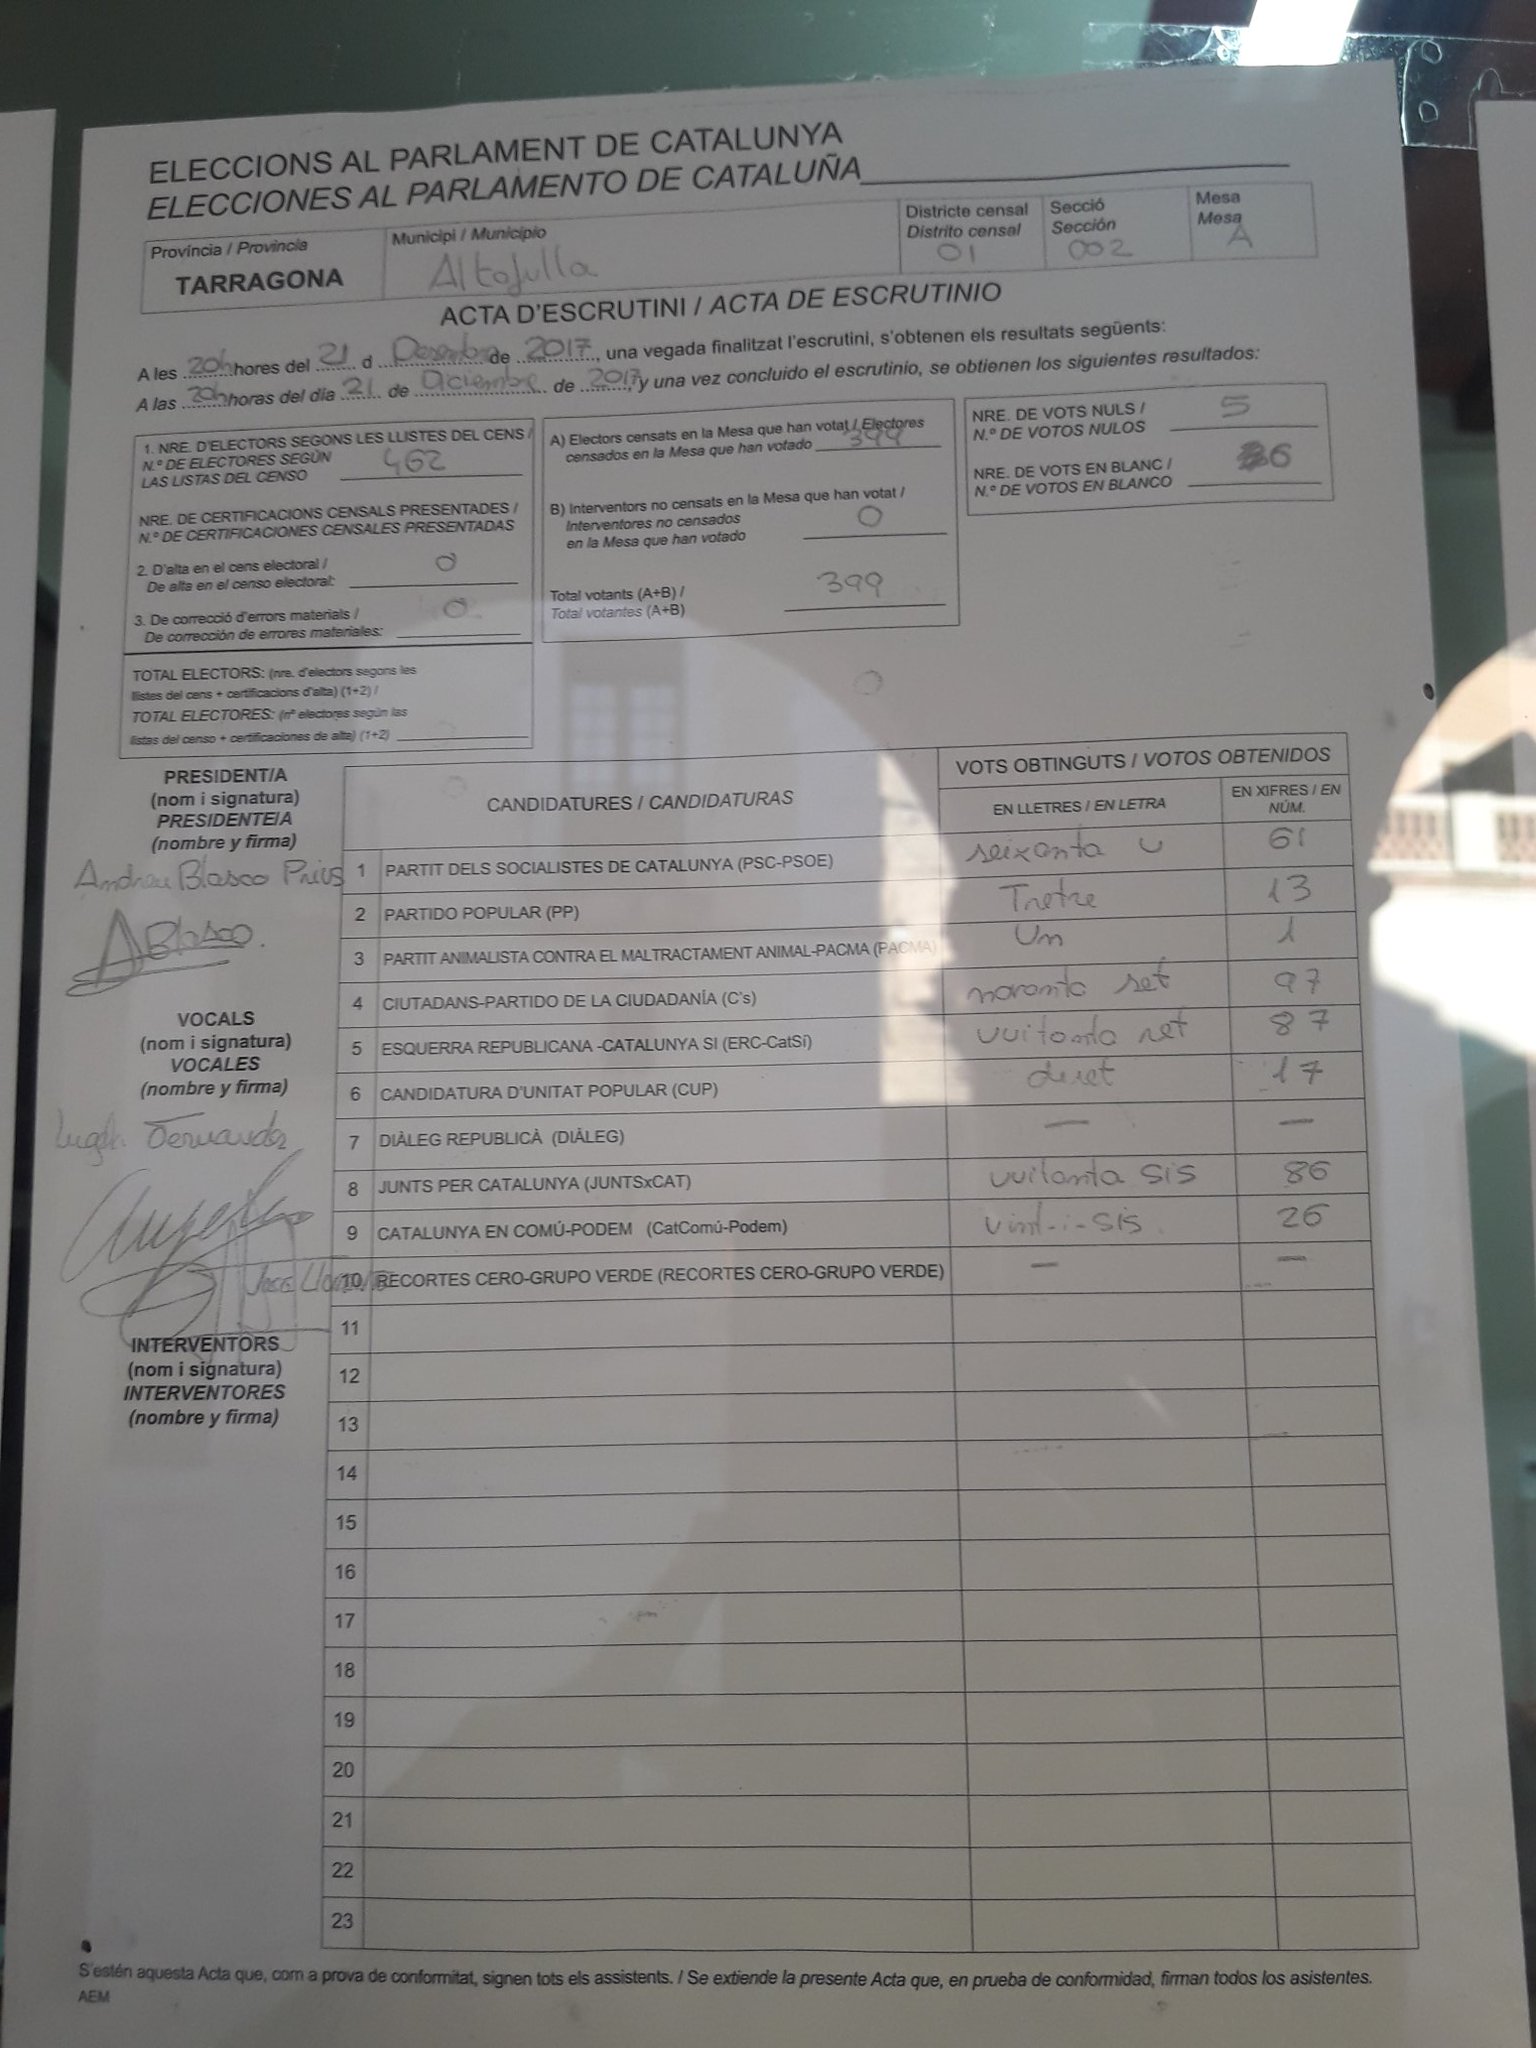 ELECCIONS AL PARLAMENT DE CATALUNYA
ELECCIONES AL PARLAMENTO DE CATALUÑA
Província / Provincia
TARRAGONA
Municipi / Municipio
Altafulla
Districte censal
Distrito censal
01
Secció
Sección
002
Mesa
Mesa
A
ACTA D'ESCRUTINI / ACTA DE ESCRUTINIO
A les 20h hores del 21 d Desembre de 2017, una vegada finalitzat l'escrutini, s'obtenen els resultats següents:
A las 20h horas del día 21 de Diciembre de 2017, y una vez concluido el escrutinio, se obtienen los siguientes resultados:
1. NRE. D'ELECTORS SEGONS LES LLISTES DEL CENS /
N.º DE ELECTORES SEGÚN
LAS LISTAS DEL CENSO 462
NRE. DE CERTIFICACIONS CENSALS PRESENTADES /
N.º DE CERTIFICACIONES CENSALES PRESENTADAS
2. D'alta en el cens electoral /
De alta en el censo electoral: 0
3. De correcció d'errors materials /
De corrección de errores materiales: 0
TOTAL ELECTORS: (nre. d'electors segons les
llistes del cens + certificacions d'alta) (1+2) /
TOTAL ELECTORES: (nº electores según las
listas del censo + certificaciones de alta) (1+2)
A) Electors censats en la Mesa que han votat / Electores
censados en la Mesa que han votado 399
B) Interventors no censats en la Mesa que han votat /
Interventores no censados
en la Mesa que han votado 0
Total votants (A+B) /
Total votantes (A+B) 399
NRE. DE VOTS NULS /
N.º DE VOTOS NULOS 5
NRE. DE VOTS EN BLANC /
N.º DE VOTOS EN BLANCO 6
PRESIDENT/A
(nom i signatura)
PRESIDENTE/A
(nombre y firma)
Andreu Blasco Prius
ABlasco.
VOCALS
(nom i signatura)
VOCALES
(nombre y firma)
Fernandez
Jose
INTERVENTORS
(nom i signatura)
INTERVENTORES
(nombre y firma)
CANDIDATURES / CANDIDATURAS
VOTS OBTINGUTS / VOTOS OBTENIDOS
EN LLETRES / EN LETRA
EN XIFRES / EN
NÚM.
1 PARTIT DELS SOCIALISTES DE CATALUNYA (PSC-PSOE) seixanta u 61
2 PARTIDO POPULAR (PP) Tretze 13
3 PARTIT ANIMALISTA CONTRA EL MALTRACTAMENT ANIMAL-PACMA (PACMA) Un 1
4 CIUTADANS-PARTIDO DE LA CIUDADANÍA (C's) noranta set 97
5 ESQUERRA REPUBLICANA -CATALUNYA SI (ERC-CatSí) vuitanta set 87
6 CANDIDATURA D'UNITAT POPULAR (CUP) diset 17
7 DIÀLEG REPUBLICÀ (DIÀLEG) — —
8 JUNTS PER CATALUNYA (JUNTSxCAT) vuitanta sis 86
9 CATALUNYA EN COMÚ-PODEM (CatComú-Podem) vint-i-sis. 26
10 RECORTES CERO-GRUPO VERDE (RECORTES CERO-GRUPO VERDE) — —
11
12
13
14
15
16
17
18
19
20
21
22
23
S'estén aquesta Acta que, com a prova de conformitat, signen tots els assistents. / Se extiende la presente Acta que, en prueba de conformidad, firman todos los asistentes.
AEM